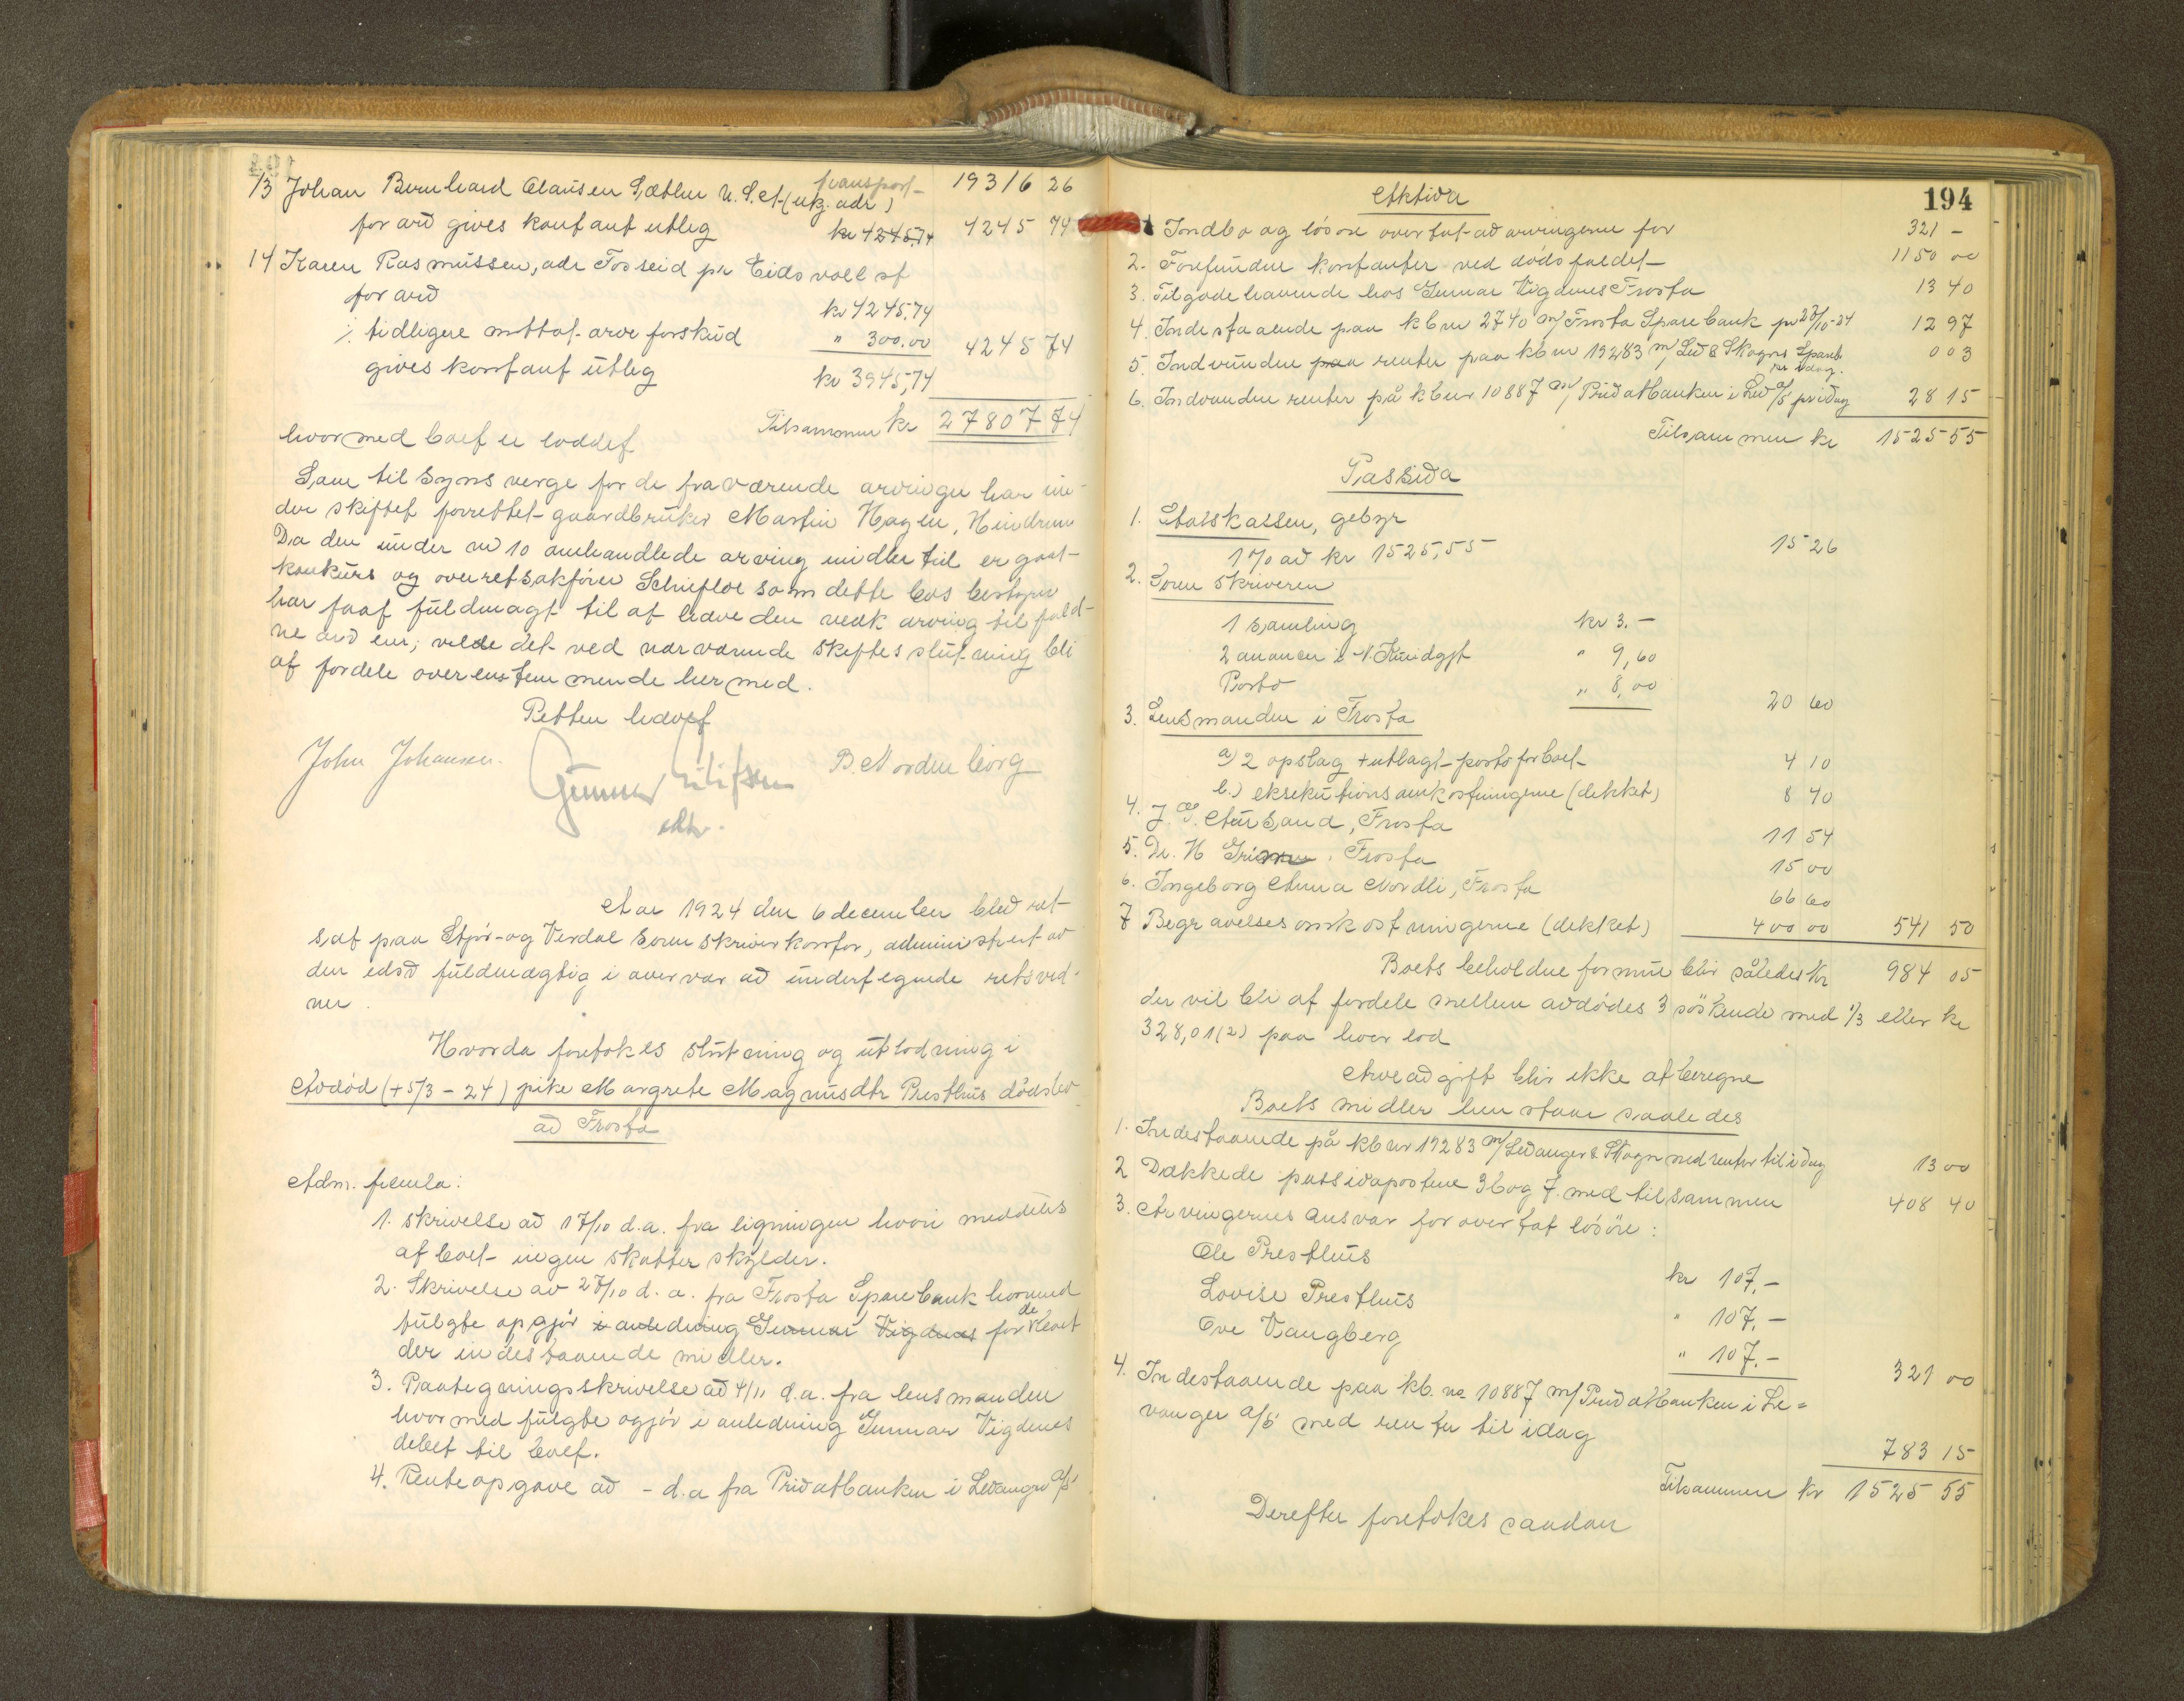 transport
13 Johan Bernhard Clausen Sætlen U.S.A (ukj. adr)
19316 26
for arv gives kontant utlæg kr 4245.74 4245 74
14 Karen Rasmussen, adr Fosseid pr Eidsvoll st
for arv kr 4245.74
÷ tidligere mottat arveforskud " 300.00 4245 74
gives kontant utlæg kr 3945,74
Tilsammen kr 27807 74
hvormed boet er loddet
Som tilsynsverge for de fraværende arvinger har un-
der skiftet forrettet gaardbruker Martin Hagen, Hindrum
Da den under nr 10 omhandlede arving imidlertid er gaat
konkurs og overretssakfører Schiefloe som dette bos bestyrer
har faat fuldmagt til at hæve den vedk arving tilfald-
ne arv em; vilde det ved nærværende skiftes slutning bli
at fordele overenstemmende hermed.
Retten hævet
John Johansen. Gunnar Eilifsen B. Nordenborg
Aar 1924 den 6 december blev ret
sat paa Stjør- og Verdal sorenskriverkontor, administrert av
den edsv fuldmægtig i overvær av undertegnede retsvid-
ner.
Hvorda foretokes slutning og utlodning i
Avdød (+ 5/3 - 24) pike Margrete Magnusdtr Presthus dødsbo
av Frosta
Adm. fremla:
1. skrivelse av 17/10 d.a. fra ligningen hvori meddeles
at boet ingen skatter skylder.
2. Skrivelse av 27/10 d.a. fra Frosta Sparebank hvormed
fulgte opgjør i anledning Gunnar Vigdenes for de hævet
der indestaaende midler.
3. Paategningsskrivelse av 4/11 d.a. fra lensmanden
hvormed fulgte ogjør i anledning Gunnar Vigdenes
debet til boet.
4. Renteopgave av - d.a fra Privatbanken i Levanger a/s
194
Aktiva
1 Indbo og løsøre overtat av arvingerne for 321 -
2. Forefundne kontanter ved dødsfaldet 1150 00
3. Tilgodehavende hos Gunnar Vigdenes Frosta 13 40
4. Indestaaende paa kb nr 2740 m/ Frosta Sparebank pr 27/10-24 12 97
5. Indvundne paa renter paa kb nr 19283 m/ Lev & Skogns Spareb. pr idag. 0 03
6. Indvundne renter på kb nr 10887 m/ Privatbanken i Lev a/s pr idag 28 15
Tilsammen kr 1525 55
Passiva
1. Statskassen, gebyr
1 % av kr 1525,55 15 26
2. Sorenskriveren
1 samling kr 3.-
2 anoncer i N. Kundgjt " 9,60
Porto " 8,00 20 60
3. Lensmanden i Frosta
a) 2 opslag + utlagt porto for boet 4 10
b.) eksekutionsomkostningerne (dekket) 8 40
4. J. G. Aursand, Frosta 11 54
5. Dr. H , Frosta 15 00
6. Ingeborg Anna Nordli, Frosta 66 60
7 Begravelsesomkostningerne (dekket) 400 00 541 50
Boets beholdne formue blir således kr 984 05
der vil bli at fordele mellem avdødes 3 søskende med 1/3 eller kr
328,01(2) paa hver lod
Arveavgift blir ikke at beregne
Boets midler henstaar saaledes
1. Indestaaende på kb nr 19283 m/ Levanger & Skogn med renter til idag 13 00
2 Dækkede passivaposterne 3b og 7. med tilsammen 408 40
3. Arvingernes ansvar for overtat løsøre:
Ole Presthus kr 107,-
Lovise Presthus " 107,-
Ove Vangberg " 107.- 321 00
4. Indestaaende paa kb. no 10887 m/ Privatbanken i Le=
vanger a/s med renter til idag 783 15
Tilsammen kr 1525 55
Derefter foretokes saadan